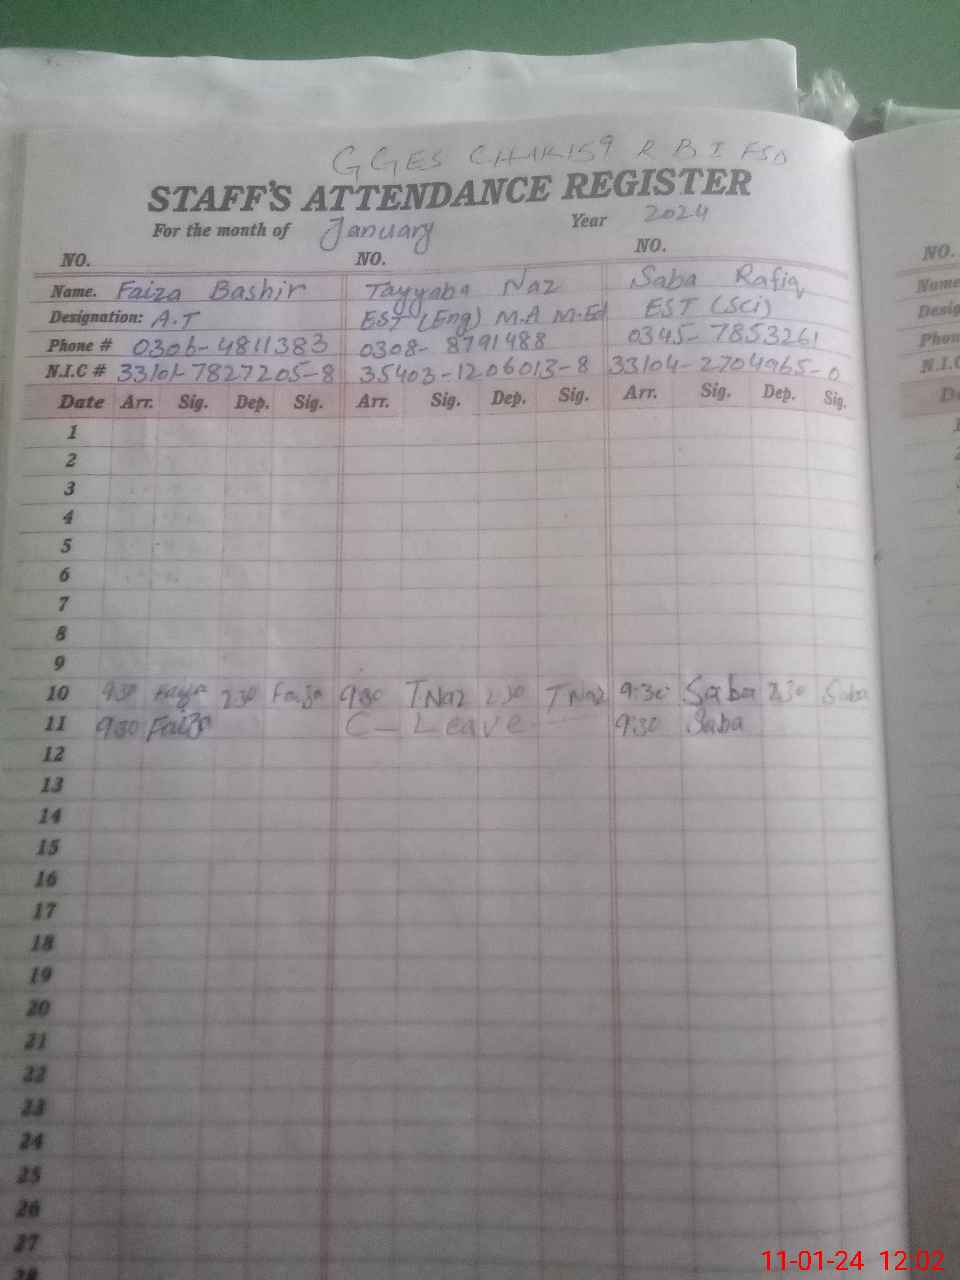 GGES CHAK159 R B I FSD
STAFF'S ATTENDANCE REGISTER
For the month of January Year 2024
NO. NO. NO. NO.
Name. Faiza Bashir Tayyaba Naz Saba Rafiq Name
Designation: A.T EST (Eng) M.A M.Ed EST (Sci) Desig
Phone # 0306-4811383 0308-8791488 0345-7853261 Phon
N.I.C # 33101-7827205-8 35403-1206013-8 33104-2704965-0 N.I.C
Date Arr. Sig. Dep. Sig. Arr. Sig. Dep. Sig. Arr. Sig. Dep. Sig. D
1
2
3
4
5
6
7
8
9
10 930 Faiza 2:30 Faiza 930 TNaz 2:30 TNaz 9:30 Saba 2:30 Saba
11 930 Faiza C-Leave 9:30 Saba
12
13
14
15
16
17
18
19
20
21
22
23
24
25
26
27
28
11-01-24 12:02